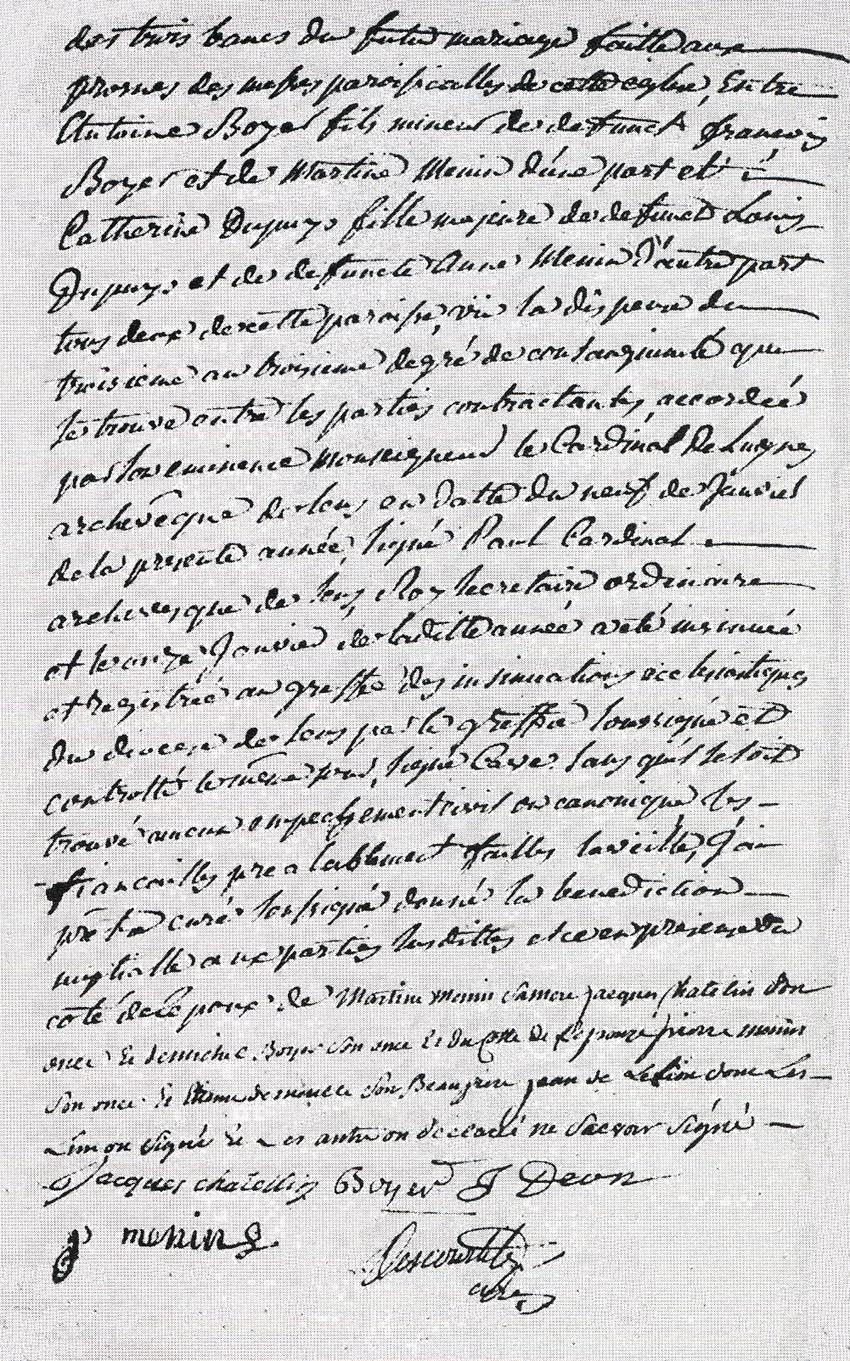 des trois bancs du futur mariage faitte aux
prosnes des messes paroissialles de cette eglise, Entre
Antoine Boyer fils mineur de defunct francois
Boyer et de Martine Menin d'une part et
Catherine Dupuys fille majeure de defunct Louis
Dupuys et de defuncte Anne Menin d'autre part
tous deux de cette paroisse, vu la dispense du
troisieme au troisieme degré de consanguinité qui
se trouve entre les parties contractantes, accordée
par son eminence monseigneur le Cardinal de Luynes
archevêque de Sens en datte du neuf de Janvier
de la presente année, signé Paul Cardinal
archevesque de Sens, Roy secretaire ordinaire
et le onze Janvier de laditte année a eté insinuée
et registrée au greffe des insinuations ecclesiastiques
du diocese de Sens par le greffier soussigné et
controllé le même jour, signé Cave. sans qu'il se soit
trouvé aucun empechement civil ou canonique les
fiancailles prealablement faittes la veille, J'ai
curé soussigné donné la benediction
nuptialle aux parties susdittes et ce en presence du
coté de l'epoux de Martine Menin sa mere jacques chatelin son
oncle et de michel Boyer son oncle et du cotté de l'epouze pierre menin
son oncle et son Beaufrere jean de dont Les
un on signé et Les autre on declaré ne sacvoir signé
Jacques chatellin Boyer J Deon
P menin
Descourtils
curé